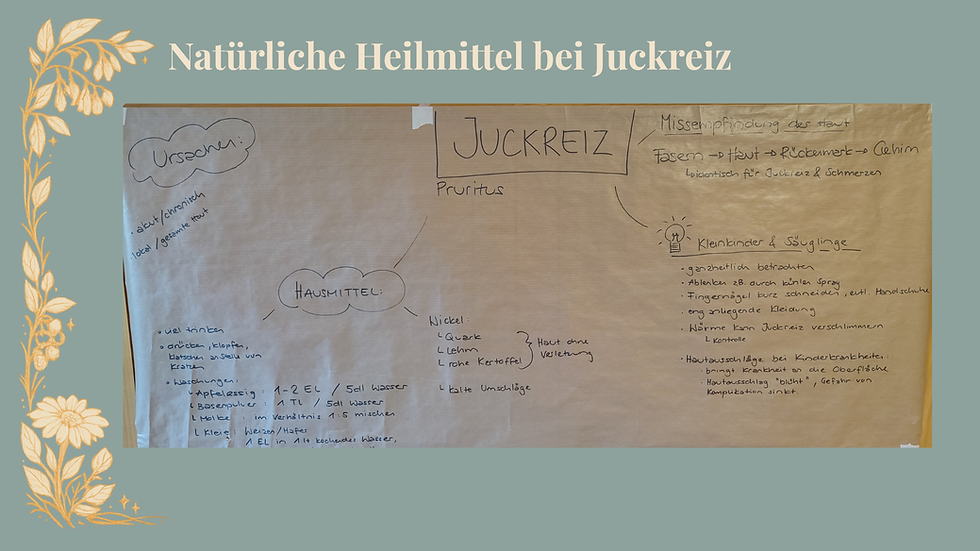 Natürliche Heilmittel bei Juckreiz
JUCKREIZ
Pruritus
Missempfindung der Haut
Fasern → Haut → Rückenmark → Gehirn
↳ identisch für Juckreiz & Schmerzen
Ursachen:
• akut/chronisch
lokal/gesamte Haut
HAUSMITTEL:
• viel trinken
• drücken, klopfen,
klatschen anstelle von
Kratzen
• Waschungen:
↳ Apfelessig: 1-2 EL / 5dl Wasser
↳ Basenpulver: 1 TL / 5dl Wasser
↳ Molke: im Verhältnis 1:5 mischen
↳ Kleie: Weizen/Hafer
1 EL in 1 lt kochendes Wasser,
Wickel:
↳ Quark
↳ Lehm
↳ rohe Kartoffel
} Haut ohne
Verletzung
↳ kalte Umschläge
Kleinkinder & Säuglinge
• ganzheitlich betrachten
• Ablenken zB. durch kühlen Spray
• Fingernägel kurz schneiden, evtl. Handschuhe
• eng anliegende Kleidung
• Wärme kann Juckreiz verschlimmern
↳ Kontrolle
• Hautausschläge bei Kinderkrankheiten:
· bringt Krankheit an die Oberfläche
· Hautausschlag "blüht", Gefahr von
Komplikation sinkt